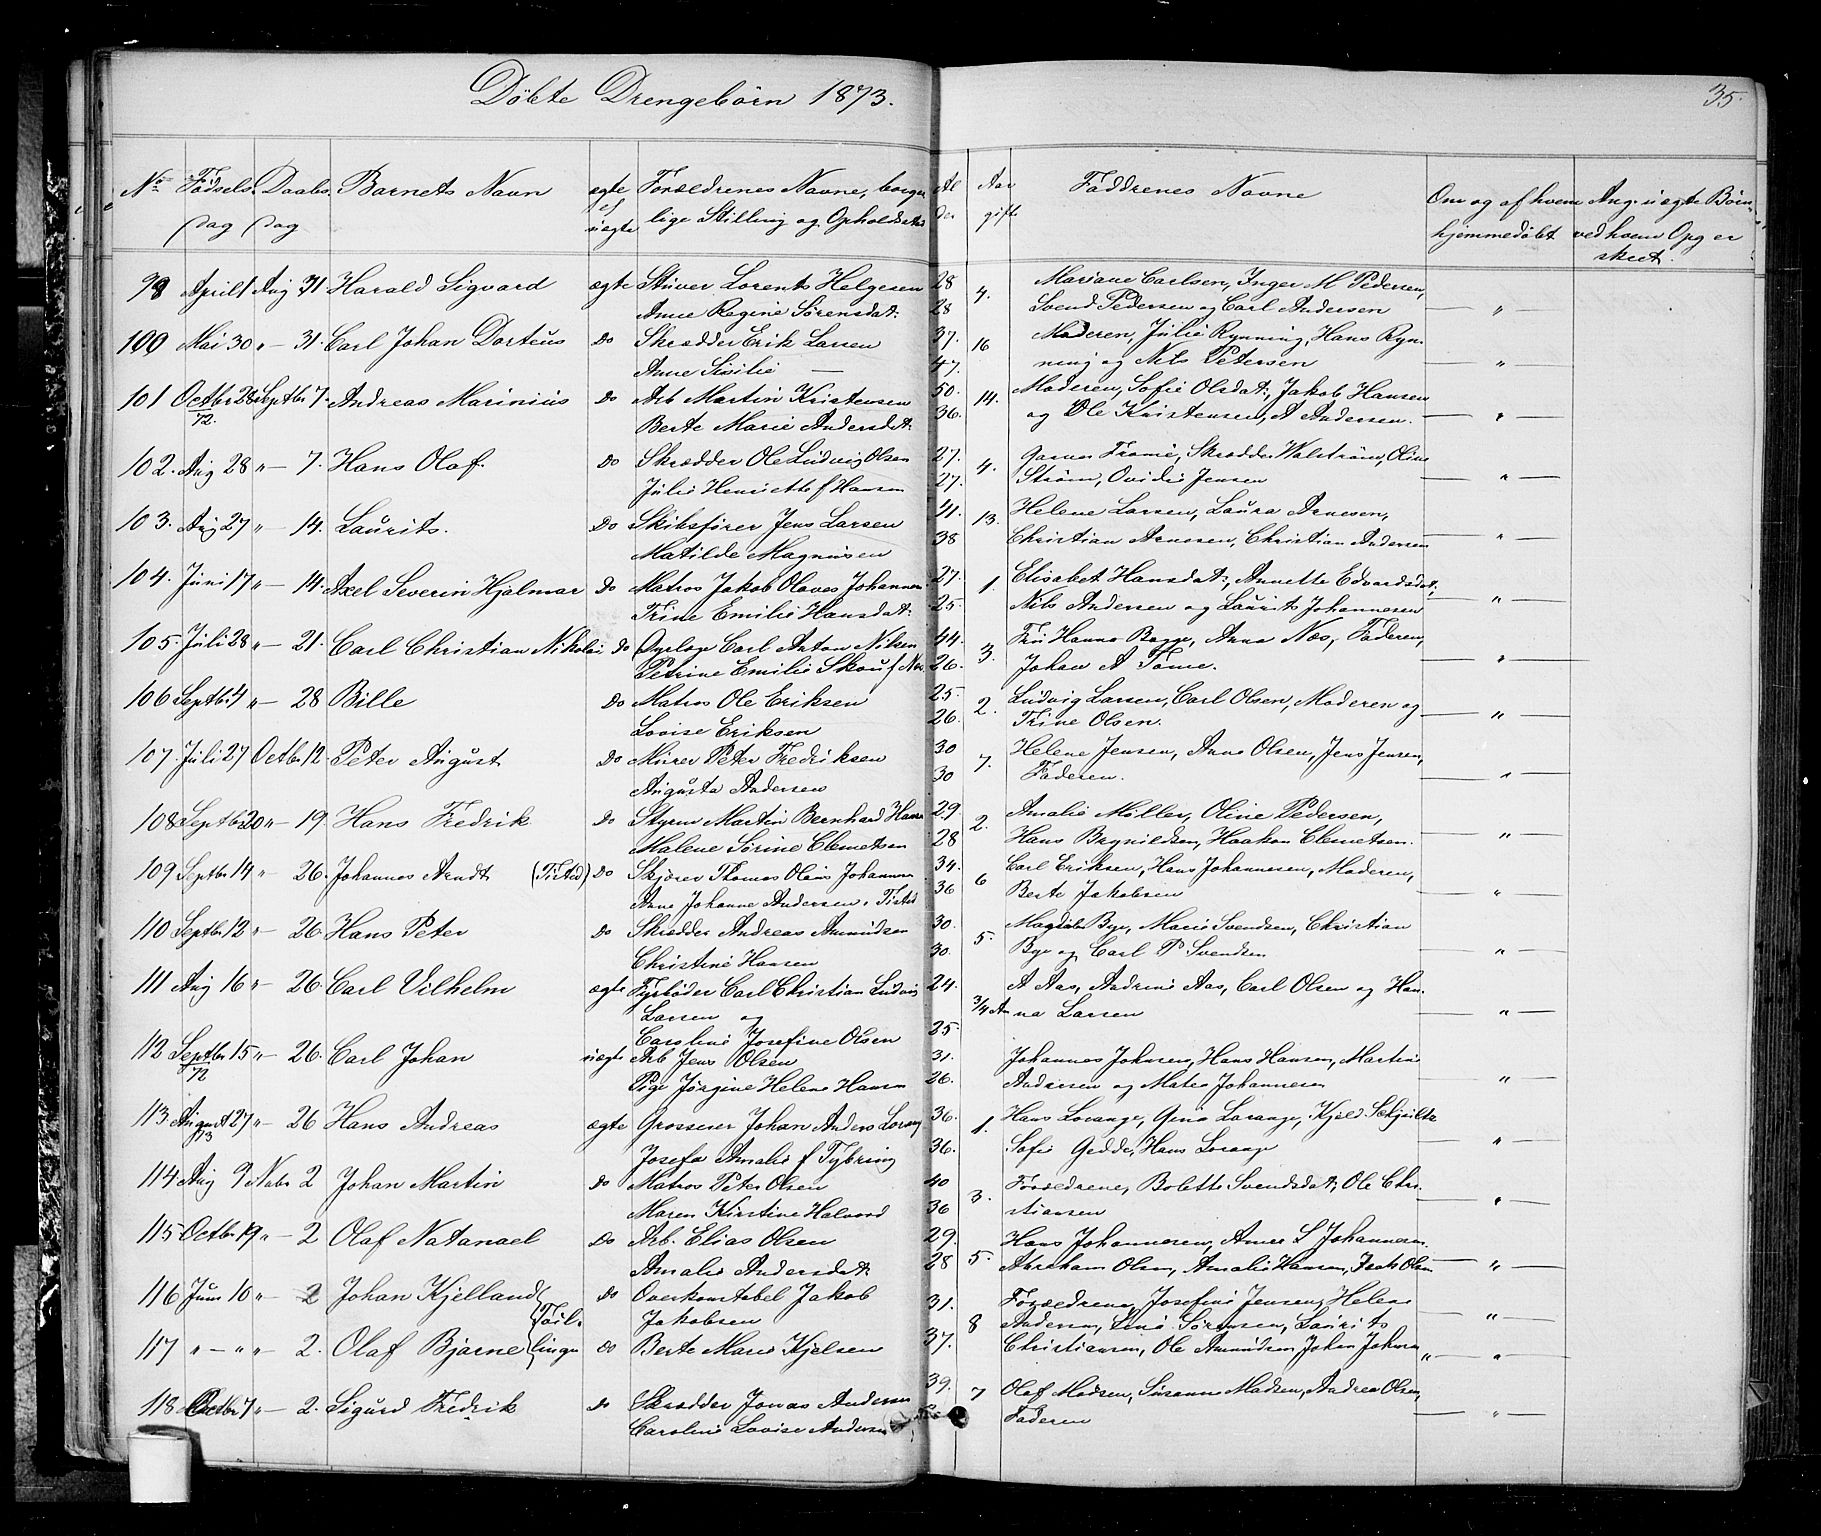 Döbte Drengebörn 1873.
35.
No Födsels Daabs Barnets Navn ægte Forældrenes Navne, borger Al Aar Faddrenes Navne Om og af hvem Ang. uægte Börn
dag dag el uægte lige Stilling og Opholdssted der gift hjemmedöbt ved hvem Opg er
skeet.
99 April 1 Aug 31 Harald Sigvard ægte Stuver Lorents Helgesen 28 4. Mariane Carlsen, Inger M Pedersen,
Anne Regine Sörensdat: 28 Svend Pedersen og Carl Andersen — " —
100 Mai 30 " — 31. Carl Johan Dorteus Do Skrædder Erik Larsen 37. 16 Moderen, Julie Rynning, Hans Ryn-
Anne Sisilie — 47. ning og Nils Petersen — " —
101 Octbr 28 Septbr 7. Andreas Marinius Do Arb Martin Kristensen 50. 14. Moderen, Sofie Olsdat:, Jakob Hansen
72. Berte Marie Andersdat: 36. og Ole Kristensen, A Andersen. — " —
102. Aug 28 " — 7. Hans Olaf. Do Skrædder Ole Ludvig Olsen 27. 4. Garver Framie, Skrædder Walström, Oline
Julie Henriette f Hansen 27. Ström, Ovidie Jensen — " —
103. Aug 27 " — 14. Laurits. Do Skibsförer Jens Larsen 41. 13. Helene Larsen, Laura Arnesen,
Matilde Magnusen 38 Christian Arnesen, Christian Andersen — " —
104. Juni 17 " — 14. Axel Severin Hjalmar Do Matros Jakob Olaves Johannes 27. 1. Elisabet Hansdat:, Annette Edvardsdat,
Trine Emilie Hansdat: 25. Nils Andersen og Laurits Johannesen — " —
105. Juli 28 " — 21. Carl Christian Nikolai Do Carl Anton Nilsen 44. 3. Fru Hanna Bagge, Anna Næs, Faderen,
Petrine Emilie Skou f 26. Johan A Tönne. — " —
106 Septbr 4 " — 28 Bille Do Matros Ole Eriksen 25. 2. Ludvig Larsen, Carl Olsen, Moderen og
Lovise Eriksen 26. Trine Olsen. — " —
107. Juli 27 Octbr 12. Peter August Do Murer Peter Fredriksen 30 7. Helene Jensen, Anne Olsen, Jens Jensen,
Augusta Andersen 30 Faderen. — " —
108 Septbr 20 " — 19. Hans Fredrik Do Styrm Martin Bernhard Hans 29. 2. Amalie Möller, Oline Pedersen,
Malene Sörine Clemetsen 28 Hans Brynildsen, Haaken Clemetsen. — " —
109 Septbr 14 " — 26. Johannes Arndt (Tisted) Do Skjörer Thomas Olaus Johannes 34. 6 Carl Eriksen, Hans Johannesen, Moderen,
Anne Johanne Andersen, Tisted 36 Berte Jakobsen — " —
110 Septbr 12 " — 26. Hans Peter Do Skrædder Andreas Amundsen 30. 5. Magdale Bye, Marie Svendsen, Christian
Christine Hansen 30. Bye og Carl P Svendsen — " —
111 Aug 16 " — 26. Carl Vilhelm ægte Fyrböder Carl Christian Ludvig 24. 3/4 A Aas, Andrine Aas, Carl Olsen og Han-
Larsen og na Larsen — " —
Caroline Josefine Olsen 25.
112 Septbr 15 " — 26. Carl Johan uægte Arb Jens Olsen 31. Johannes Johnsen, Hans Hansen, Martin
72 Pige Jörgine Helene Hansen 26. Andersen og Mateo Johannesen — " —
113. August 27 " — 26 Hans Andreas ægte Grosserer Johan Anders Lorang 36. 1. Hans Lorange, Gina Lorange, Kjeld
73 Josefa Amalie f Tybring 36. Sofie Gedde, Hans Lorange — " —
114 Aug 9 Novbr 2 Johan Martin Do Matros Peter Olsen 40 3. Forældrene, Bolette Svendsdat:, Ole Chri-
Maren Kirstine Halvord 36 stiansen — " —
115 Octbr 19 " — 2 Olaf Natanael Do Arb. Elias Olsen 29. 5. Hans Johannesen, Anne S Johannesen.
Amalie Andersdat: 28 Abraham Olsen, Amalie Hansen, Isak Olsen — " —
116 Juni 10 " — 2 Johan Kjelland Do Overkonstabel Jakob 31. 8 Forældrene, Josefine Jensen, Helene
Tvil- Jakobsen Andersen, Line Sörensen, Laurits — " —
117 " — " " — 2. Olaf Bjarne linge Do Berte Marie Kjelsen 37. Christiansen, Ole Amundsen Johan Johnsen " — " —
118 Octbr 7 " — 2. Sigurd Fredrik Do Skrædder Jonas Andersen 39. 7 Olaf Madsen, Susanne Madsen, Andrea Olsen,
Caroline Lovise Andersen Faderen — " —